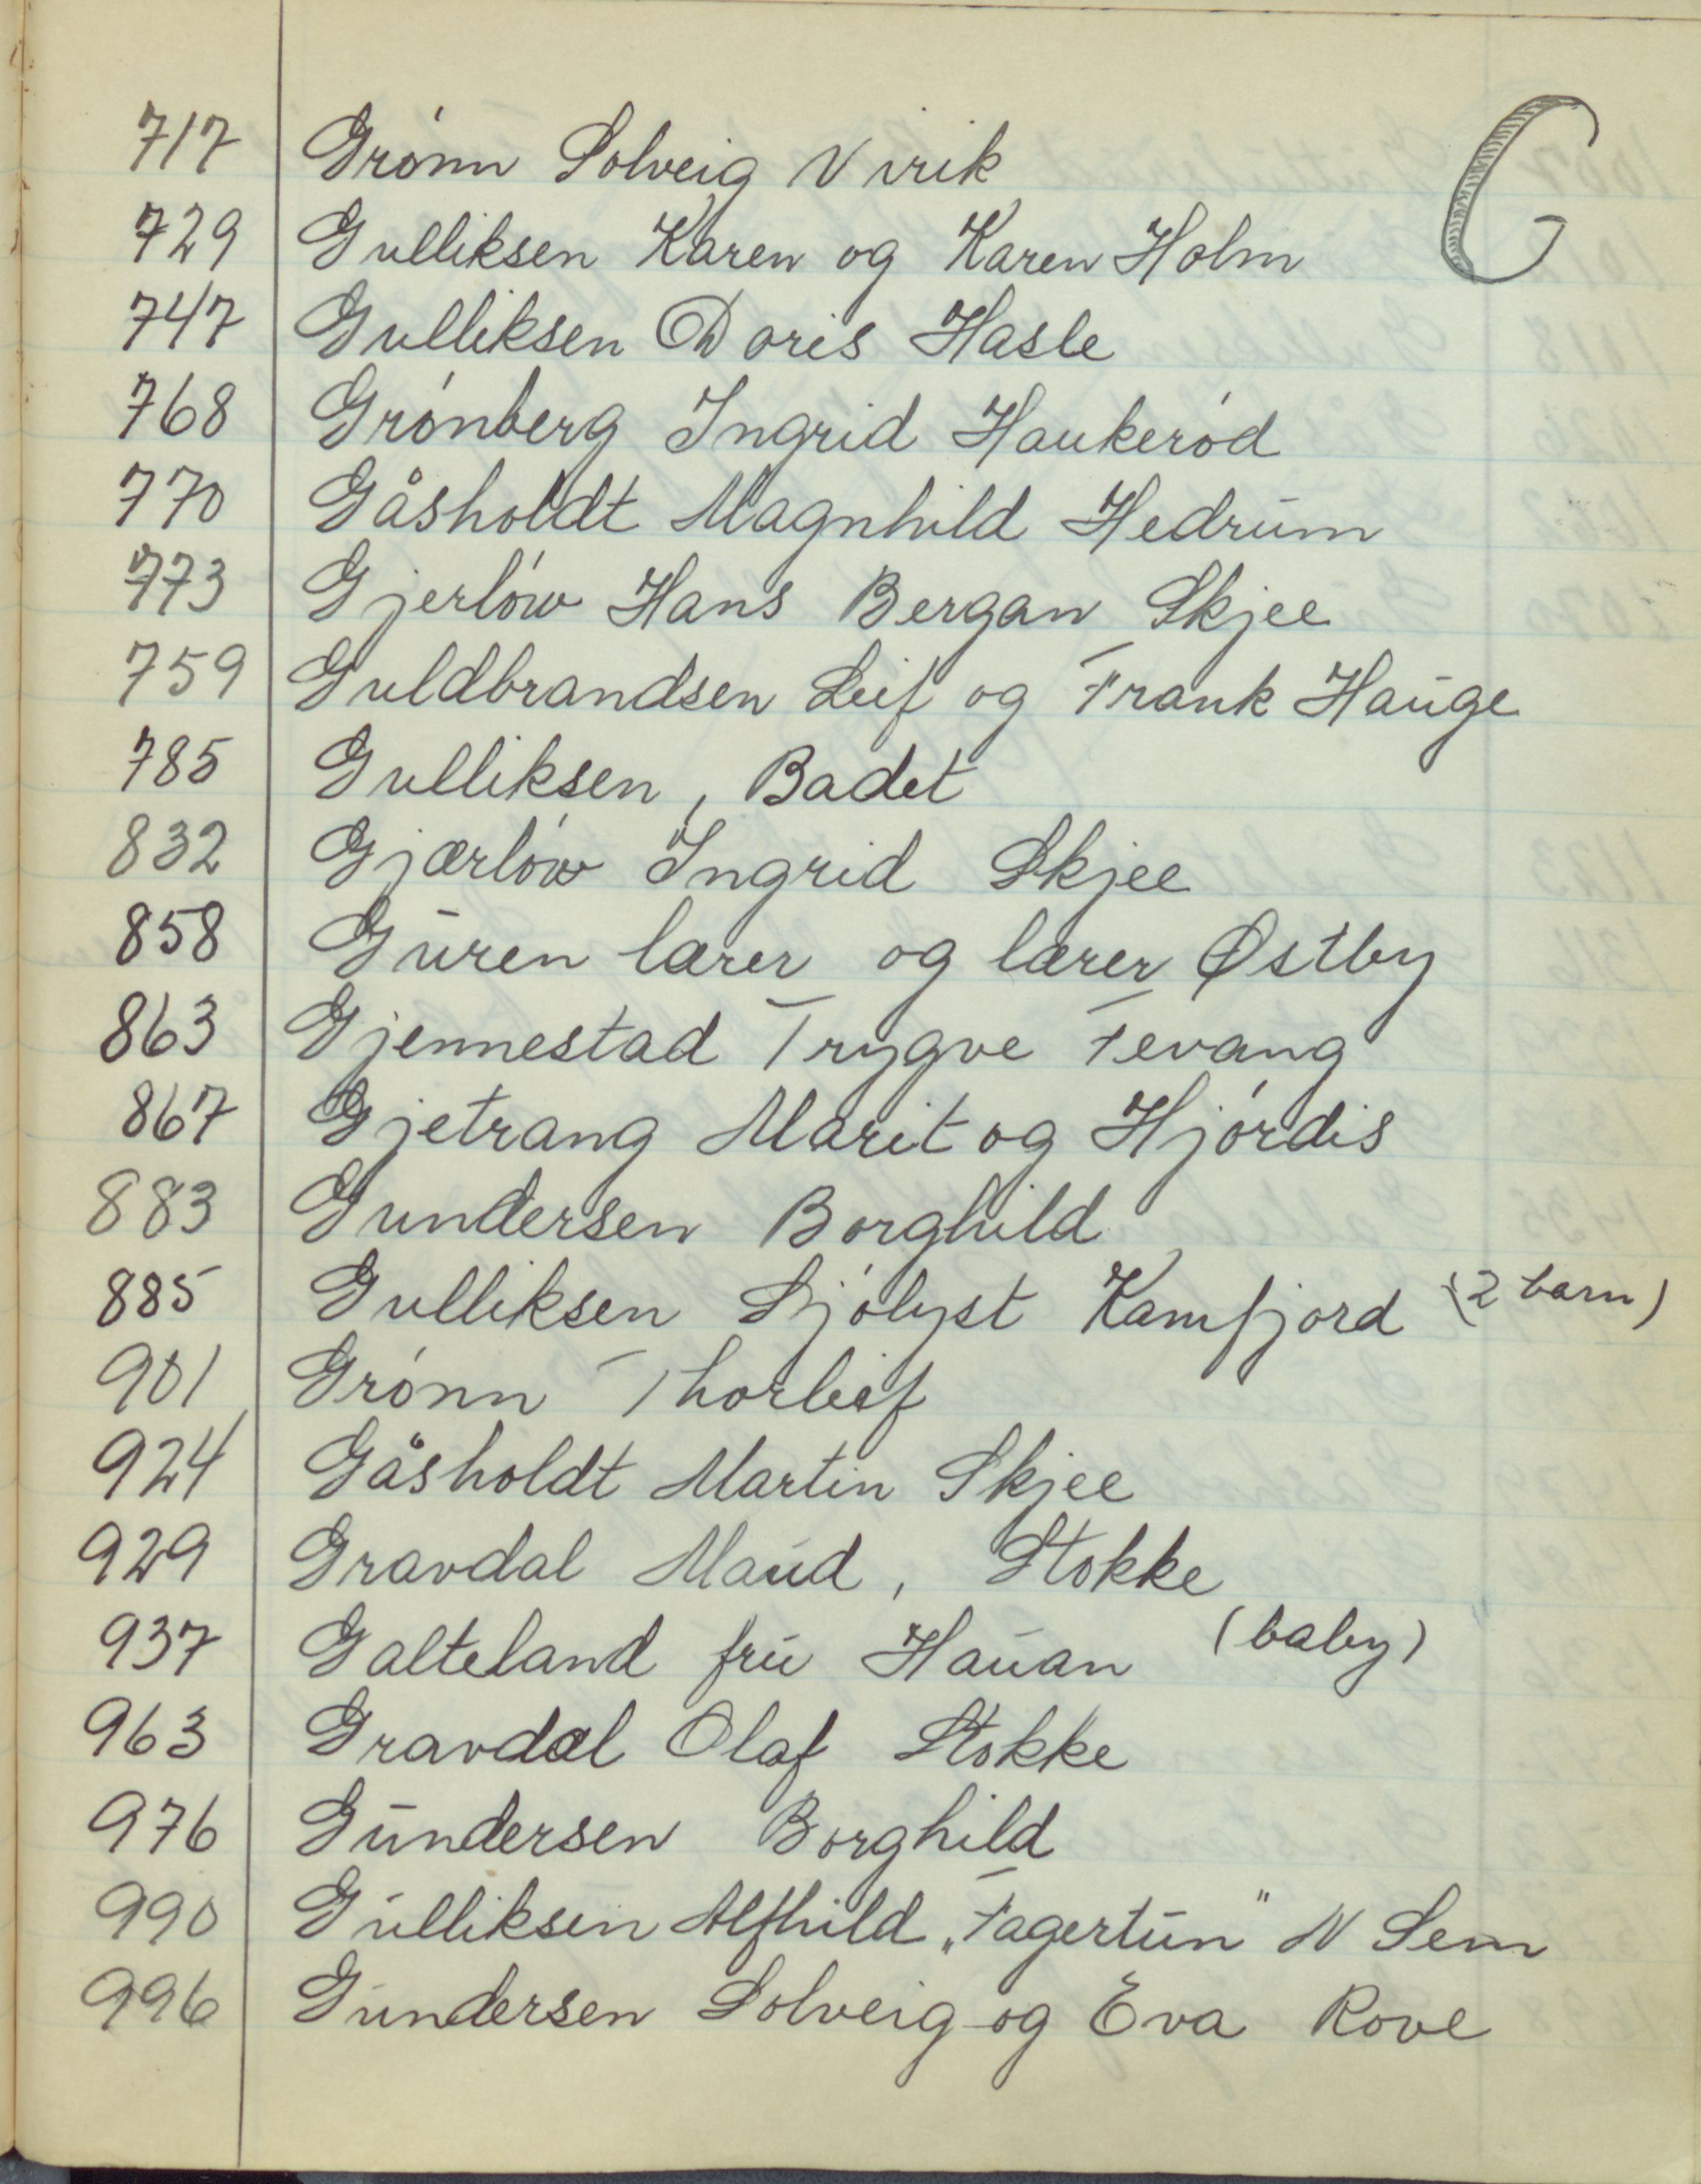 G
717 Grónn Solveig Virik
729 Gulliksen Karen og Karen Holm
747 Gulliksen Doris Hasle
768 Grónberg Ingrid Haukeród
770 Gåsholdt Magnhild Hedrum
773 Gjerlów Hans Bergan Skjee
759 Guldbrandsen Leif og Frank Hauge
785 Gulliksen, Badet
832 Gjærlów Ingrid Skjee
858 Guren lærer og lærer Østby
863 Gjennestad Trygve Fevang
867 Gjetrang Marit og Hjórdis
883 Gundersen Borghild
885 Gulliksen Sjólyst Kamfjord (2 barn)
901 Grónn Thorleif
924 Gåsholdt Martin Skjee
929 Gravdal Maud, Stokke
937 Galteland fru Hauan (baby)
963 Gravdal Olaf Stokke
976 Gundersen Borghild
990 Gulliksen Alfhild „Fagertun" N Sem
996 Gundersen Solveig og Eva Rove